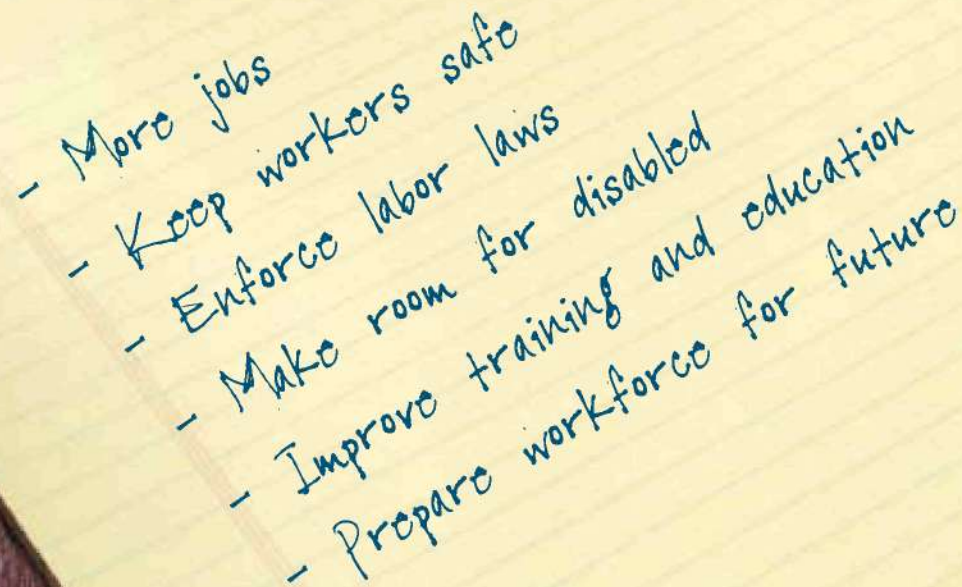 - More jobs
- Keep workers safe
- Enforce labor laws
- Make room for disabled
- Improve training and education
- Prepare workforce for future